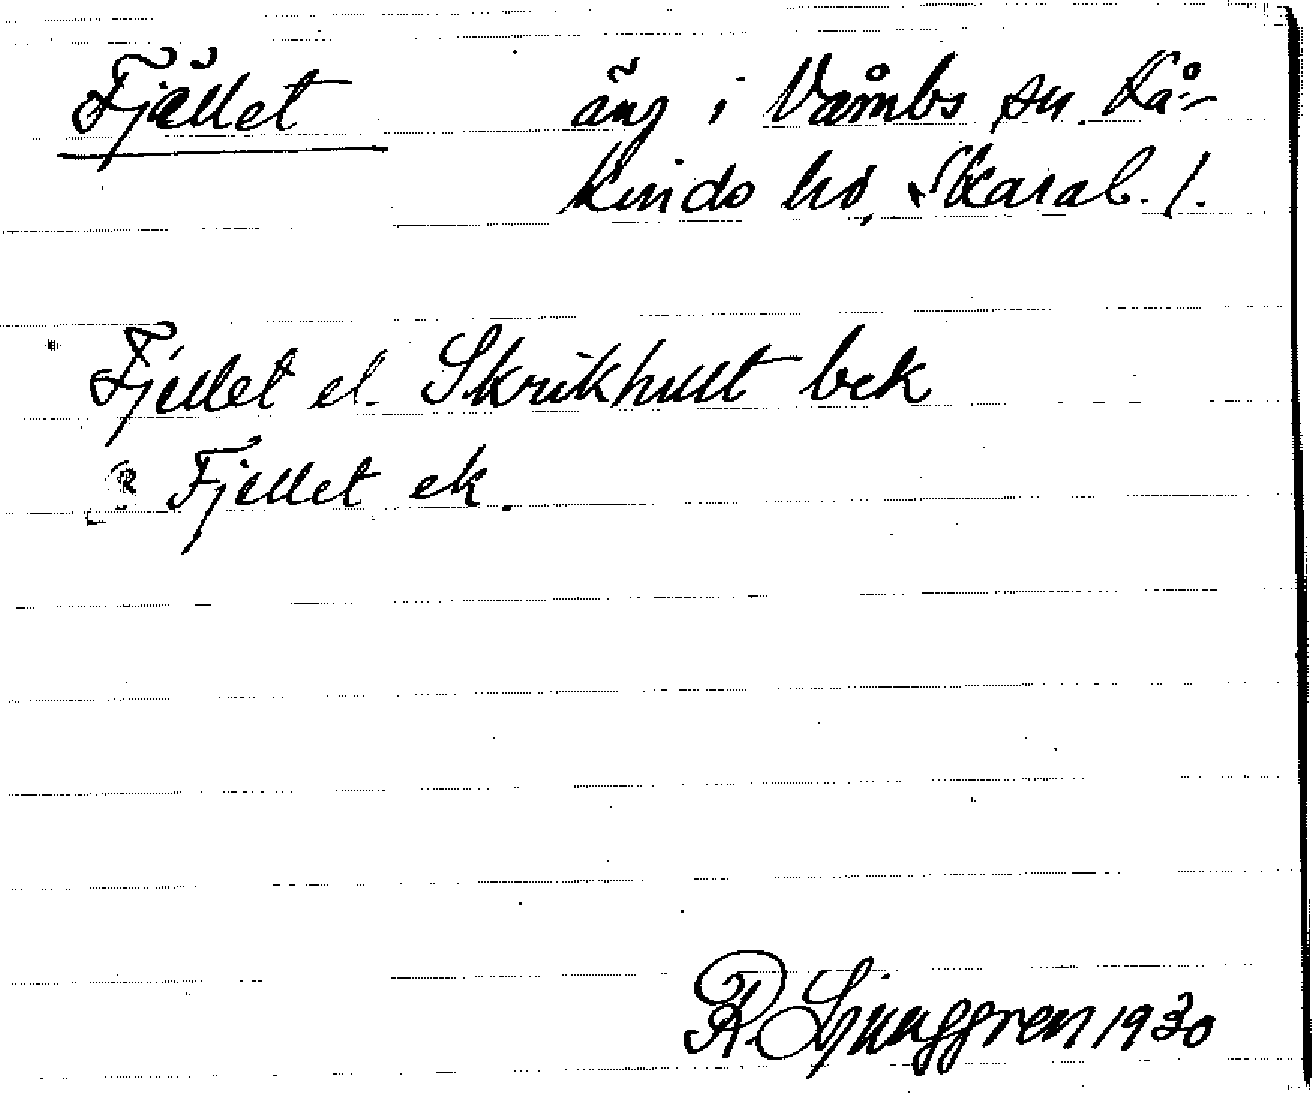 Fjället äng i Våmbs sn. Kå-
kinds hd, Skarab. l.
Fjellet el. Skrikhult bek
Fjellet ek.
R. Ljunggren 1930